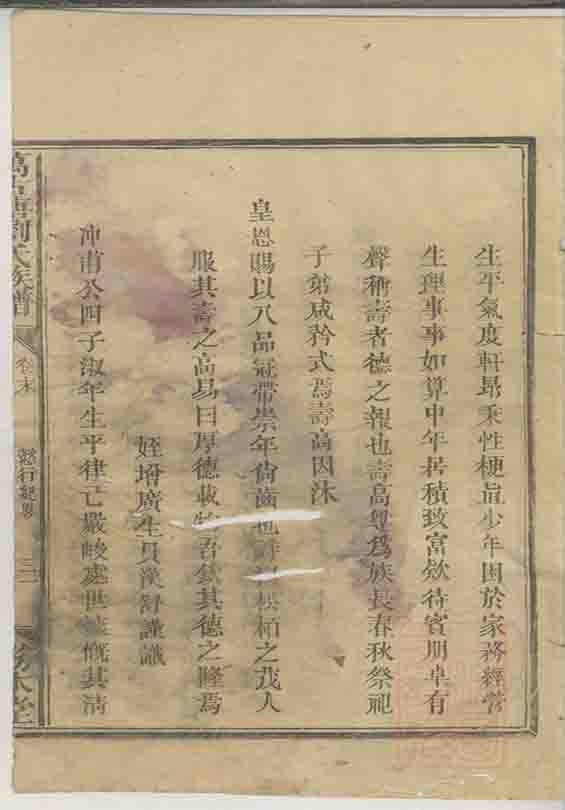 生平氣度軒昂秉性梗直少年困於家務經營
生理事事如算中年居積致富欵待賓朋卓有
聲稱壽者德之報也壽高舉爲族長春秋祭祀
子弟咸矜式焉壽高因沐
皇恩賜以八品冠帶崇年尚齒也 松栢之茂人
服其壽之高易曰厚德載物吾欽其德之隆焉
姪增廣生員漢舒謹識
冲甫公四子淑年生平律己嚴峻處世慷慨其清
劉氏族譜
卷末
懿行